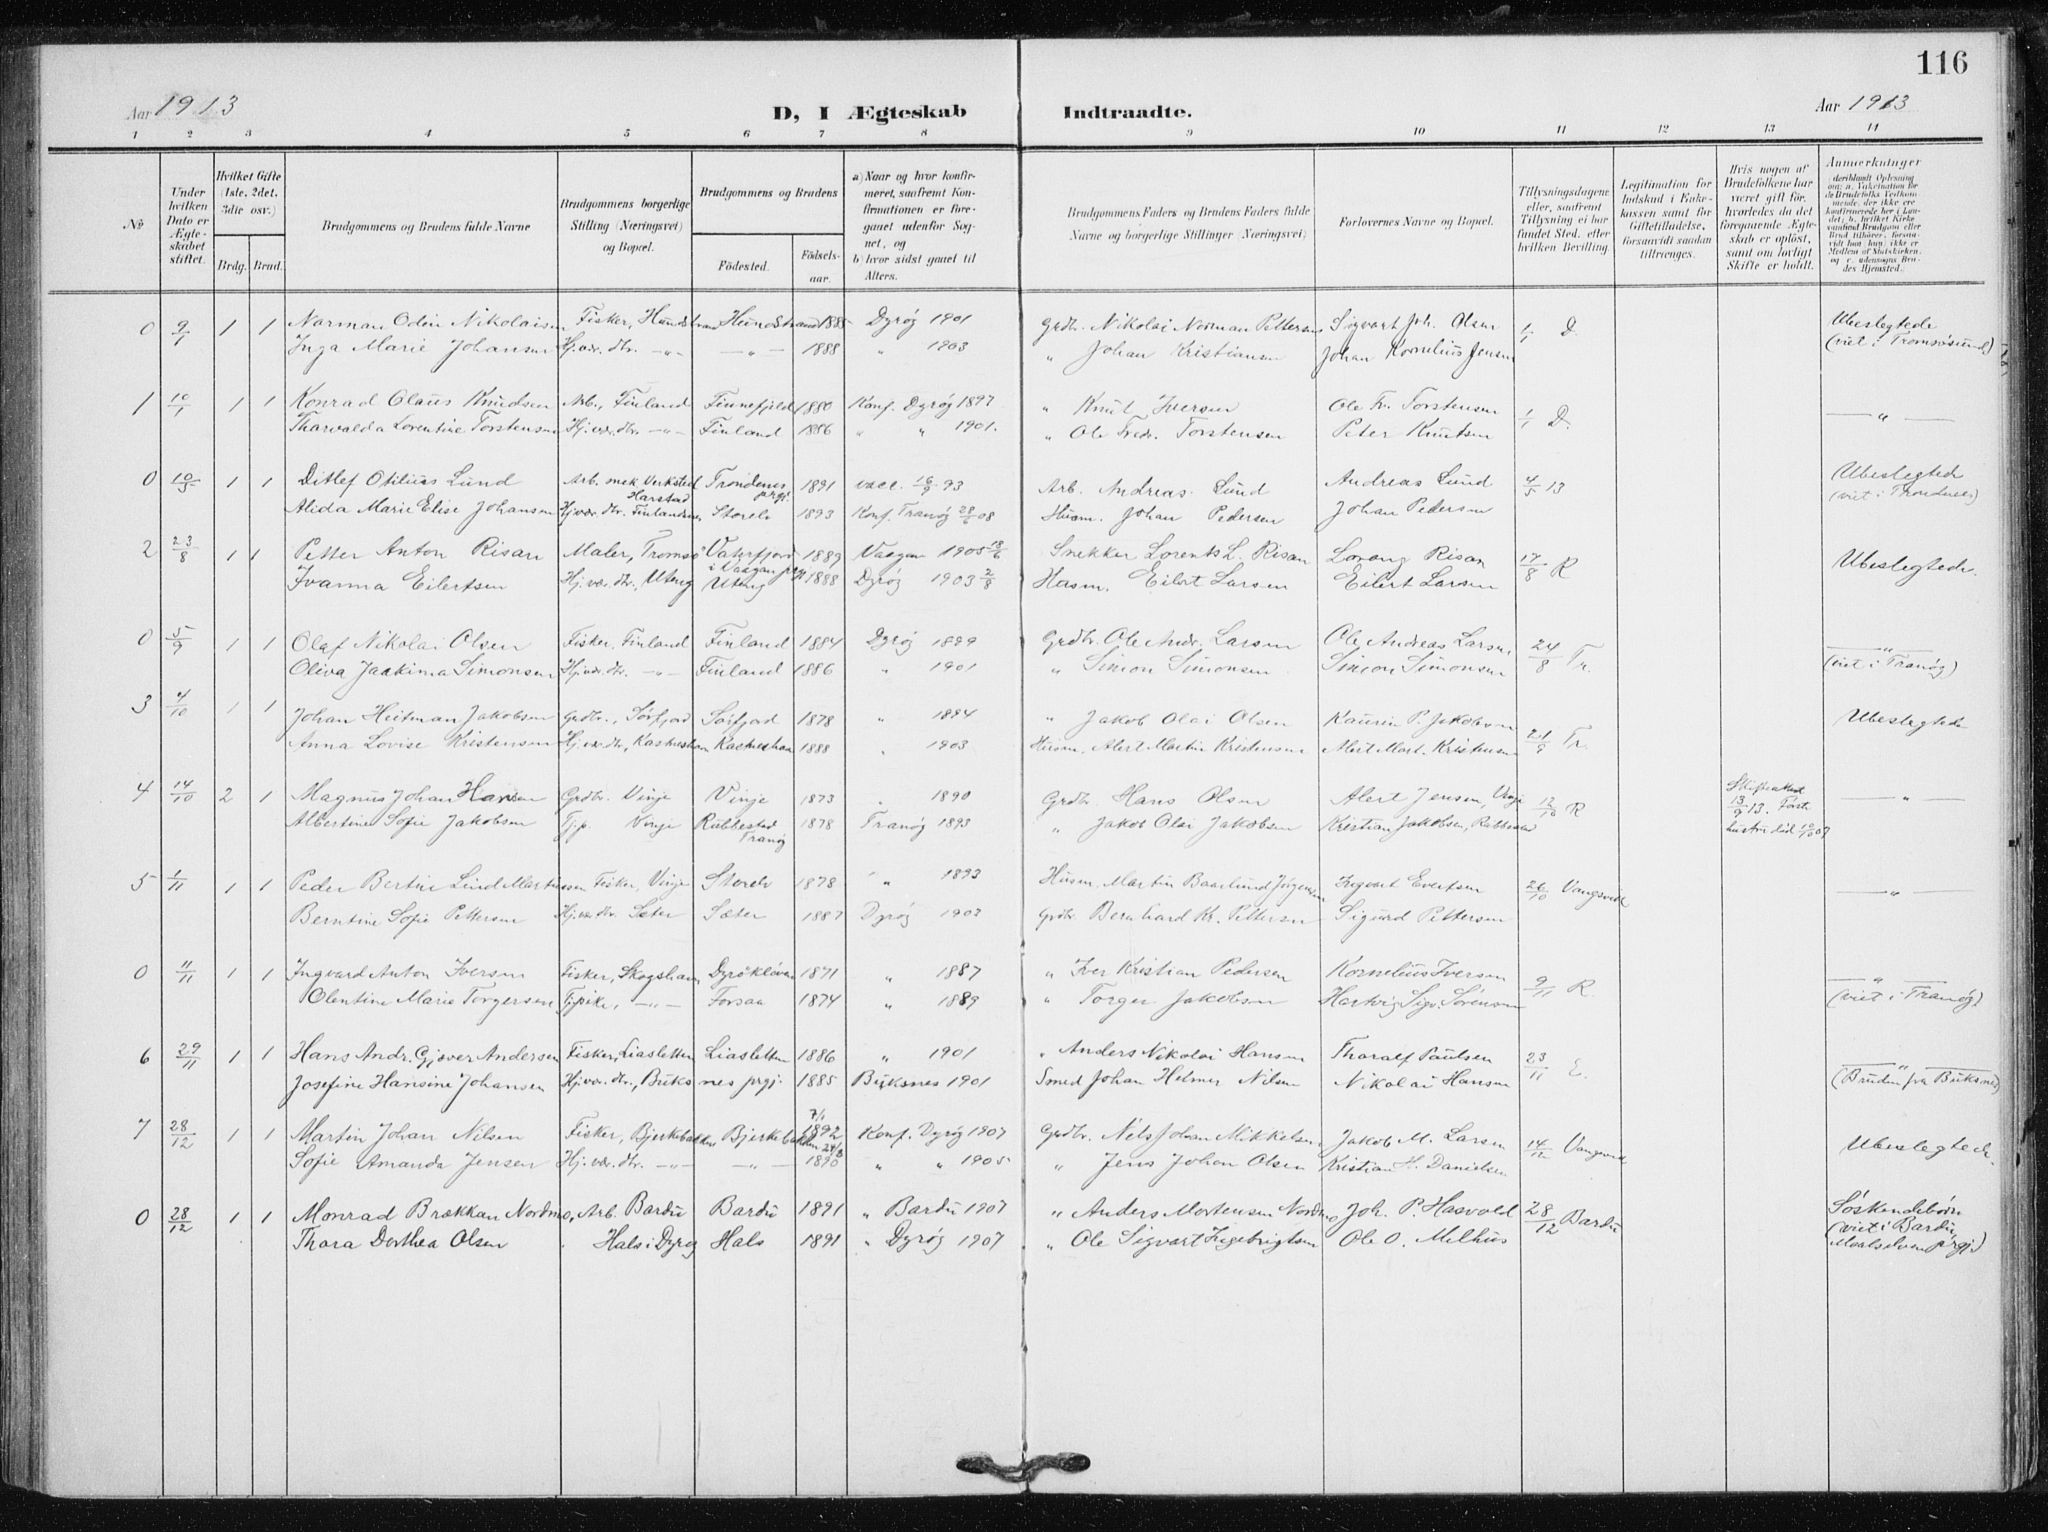 116
Aar 1913 D, I Ægteskab Indtraadte. Aar 1913
1 2 3 4 5 6 7 8 9 10 11 12 13 14
№
Under hvilken Dato er Ægteskabet stiftet.
Hvilket Gifte (1ste, 2det, 3die osv.)
Brdg. Brud.
Brudgommens og Brudens fulde Navne
Brudgommens borgerlige Stilling (Næringsvei) og Bopæl.
Brudgommens og Brudens
Fødested. Fødselsaar.
a) Naar og hvor konfirmeret, saafremt Konfirmationen er foregaaet udenfor Sognet, og
b) hvor sidst gaaet til Alters.
Brudgommens Faders og Brudens Faders fulde Navne og borgerlige Stillinger (Næringsvei)
Forlovernes Navne og Bopæl.
Tillysningsdagene eller, saafremt Tillysning ei har fundet Sted, efter hvilken Bevilling.
Legitimation for Indskud i Enkekassen samt for Giftetilladelse, forsaavidt saadan tiltrænges.
Hvis nogen af Brudefolkene har været gift før, hvorledes da det foregaaende Ægteskab er opløst, samt om lovligt Skifte er holdt.
Anmærkninger
0 9/1 1 1 Norman Odin Nikolaisen Fisker, Hundstrand Hundstrand 1885 Dyrøy 1901 Grdbr. Nikolai Norman Pettersen Sigvart Joh. Olsen 1/1 D. Ubeslegtede
Inga Marie Johansen Hj.vær. dtr. -"- -"- 1888 " 1903 " Johan Kristiansen Johan Kornelius Jensen (viet i Tromsøsund)
1 10/1 1 1 Konrad Olaus Knudsen Arb., Finland Finnefjeld 1880 Konf. Dyrøy 1897 " Knut Iversen Ole Fr. Torstensen 1/1 D. — " —
Tharvalda Lorentine Torstensen Hj.vær. dtr. -"- Finland 1886 " " 1901. " Ole Fredr. Torstensen Peter Knutsen
0 10/5 1 1 Ditlef Otilius Lund Arb. mek. Verksted Harstad Trondenes prgj. 1891 vacc. 16/9 93 Arb. Andreas Lund Andreas Lund 4/5 13 Ubeslegtede
Alida Marie Elise Johansen Hj.vær. dtr. Finlandsnes Storelv 1893 Konf. Tranøy 28/6 08 Husm. Johan Pedersen Johan Pedersen (viet i Trondenes)
2 23/8 1 1 Petter Anton Risan Maler, Tromsø i Vaagan prgj. 1889 Vaagan 1905 18/6 Snekker Lorents L. Risan Lorang Risan 17/8 R Ubeslegtede.
Ivanna Eilertsen Hj.vær. dtr., Uteng Uteng 1888 Dyrøy 1903 2/8 Husm. Eilert Larsen Eilert Larsen
0 5/9 1 1 Olaf Nikolai Olsen Fisker, Finland Finland 1884 Dyrøy 1899 Grdbr. Ole Andr. Larsen Ole Andreas Larsen 24/8 Tr. — " —
Oliva Jaakima Simonsen Hj.vær. dtr. -"- Finland 1886 " 1901 " Simon Simonsen Simon Simonsen (viet i Tranøy)
3 4/10 1 1 Johan Heitman Jakobsen Grdbr., Sørfjord Sørfjord 1878 " 1894 " Jakob Olai Olsen Kaurin P. Jakobsen 21/9 Tr. Ubeslegtede
Anna Lovise Kristensen Hj.vær. dtr, Kastneshavn Kastneshavn 1888 " 1903 Husm. Alert Martin Kristensen Alert Mart. Kristensen
4 14/10 2 1 Magnus Johan Hansen Grdbr. Vinje Vinje 1873 " 1890 Grdbr Hans Olsen Alert Jensen, Vinje 12/10 R 13/9 13. — " —
Albertine Sofie Jakobsen Tjp. Vinje Rubbestad Tranøy 1878 Tranøy 1893 " Jakob Olai Jakobsen Kristian Jakobsen, Rubbestad hustru død
5 1/11 1 1 Peder Bertin Lind Martinussen Fisker, Vinje Storelv 1878 " 1893 Husm, Martin Baarlund Jørgensen Ingvart Evertsen 26/10 Vangsvik — " —
Berntine Sofie Pettersen Hj.vær. dtr. Sæter Sæter 1887 Dyrøy 1903 Grdbr Bernhard Kr. Pettersen Sigurd Pettersen
0 11/11 1 1 Ingvard Anton Iversen Fisker, Skogshavn Dyrøkløven 1871 " 1887 " Iver Kristian Pedersen Kornelius Iversen 9/11 R. — " —
Olentine Marie Torgersen Tjpike, -"- Forsaa 1874 " 1889 " Torger Jakobsen Hartvig Sigv. Sørensen (viet i Tranøy)
6 29/11 1 1 Hans Andr. Gjæver Andersen Fisker, Liasletten Liasletten 1886 " 1901 " Anders Nikolai Hansen Tharalf Paulsen 23/11 E. — " —
Josefine Hansine Johansen Hj.vær. dtr., Buksnes prgj. 1885 Buksnes 1901 Smed Johan Helmer Nilsen Nikolai Hansen (Bruden fra Buksnes)
7 28/12 1 1 Martin Johan Nilsen Fisker, Bjerkebakken Bjerkebakken 7/1 1892 Konf. Dyrøy 1907 Grdbr. Nils Johan Mikkelsen Jakob M. Larsen 14/12 Vangsvik Ubeslegtede.
Sofie Amanda Jensen Hj.vær. dtr. -"- -"- 1890 " " 1905 " Jens Johan Olsen Kristian H. Danielsen
0 28/12 1 1 Monrad Brækkan Nordmo, Arb. Bardu Bardu 1891 " Bardu 1907 " Anders Mortensen Nordmo Joh. P. Hasvold 28/12 Bardu Søskendebørn
Thora Dorthea Olsen Hals i Dyrøy Hals 1891 " Dyrøy 1907 " Ole Sigvart Ingebrigtsen Ole O. Melhus (viet i Bardu, Maalselven prgj)